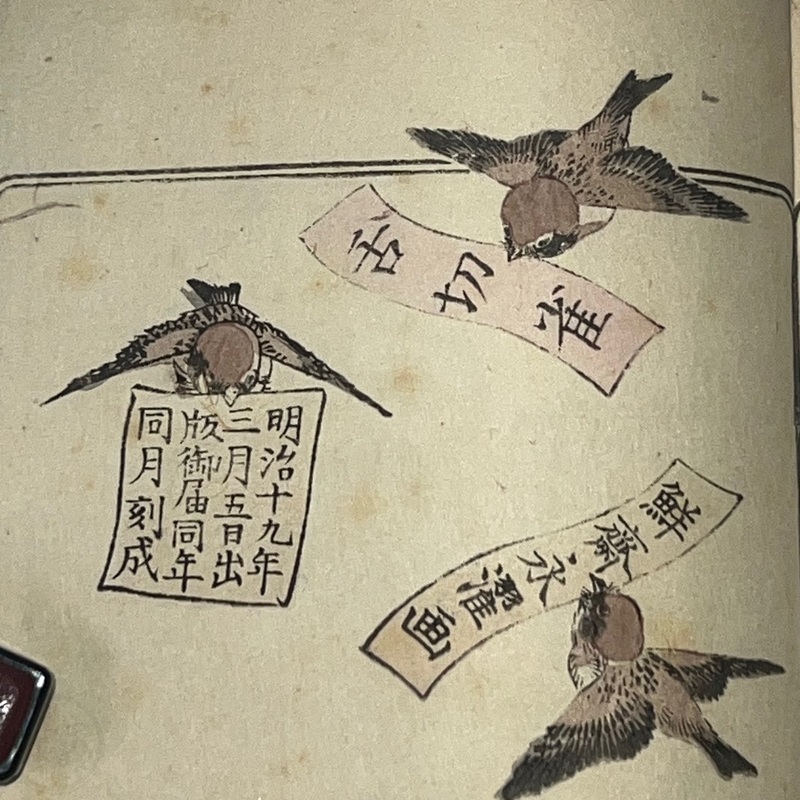 舌切雀
明治十九年
三月五日出
版御届同年
同月刻成
鮮齋永濯画